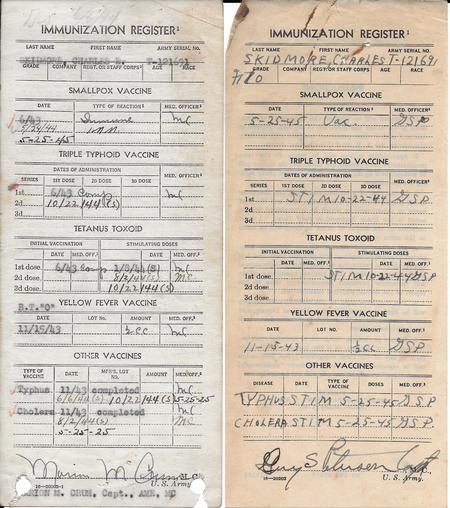 IMMUNIZATION REGISTER¹
LAST NAME FIRST NAME ARMY SERIAL NO.
SKIDMORE, CHARLES T-121691
GRADE COMPANY REGT. OR STAFF CORPS² AGE RACE
SMALLPOX VACCINE
DATE TYPE OF REACTION³ MED. OFFICER⁴
6/43 Immune MC
5/24/44
5-25-45
TRIPLE TYPHOID VACCINE
DATES OF ADMINISTRATION
SERIES 1ST DOSE 2D DOSE 3D DOSE MED. OFFICER
1st 6/43 Comp MC
2d. 10/22/44 (S)
3d.
TETANUS TOXOID
INITIAL VACCINATION STIMULATING DOSES
DATE MED. OFF. DATE MED. OFF.
1st dose. 6/43 Comp 1/8/44 (S) MC
2d dose. 8/2/44 (S) MC
3d dose. 10/22/44 (S)
B.T. "O" YELLOW FEVER VACCINE
DATE LOT NO. AMOUNT MED. OFF.
11/15/43 ½cc MC
OTHER VACCINES
TYPE OF VACCINE DATE MFR'S. LOT NO. AMOUNT MED. OFF.
Typhus 11/43 completed MC
6/6/44 (S) 10/22/44 (S) 5-25-25
Cholera 11/43 completed MC
8/2/44 (S) MC
5-25-25
MARION M. CRUM, Capt., AME, MC
U. S. Army.
IMMUNIZATION REGISTER¹
LAST NAME FIRST NAME ARMY SERIAL NO.
SKIDMORE, CHARLES T-121691
GRADE COMPANY REGT. OR STAFF CORPS² AGE RACE
F/O
SMALLPOX VACCINE
DATE TYPE OF REACTION MED. OFFICER
5-25-45 Vac. GSP
TRIPLE TYPHOID VACCINE
DATES OF ADMINISTRATION
SERIES 1ST DOSE 2D DOSE 3D DOSE MED. OFFICER
1st STIM 10-22-44 GSP
2d.
3d.
TETANUS TOXOID
INITIAL VACCINATION STIMULATING DOSES
DATE MED. OFF. DATE MED. OFF.
1st dose. STIM 10-22-44 GSP
2d dose.
3d dose.
YELLOW FEVER VACCINE
DATE LOT NO. AMOUNT MED. OFF.
11-15-43 ½cc GSP
OTHER VACCINES
DISEASE DATE TYPE OF VACCINE DOSES MED. OFF.
TYPHUS STIM 5-25-45 GSP
CHOLERA STIM 5-25-45 GSP
U. S. Army.